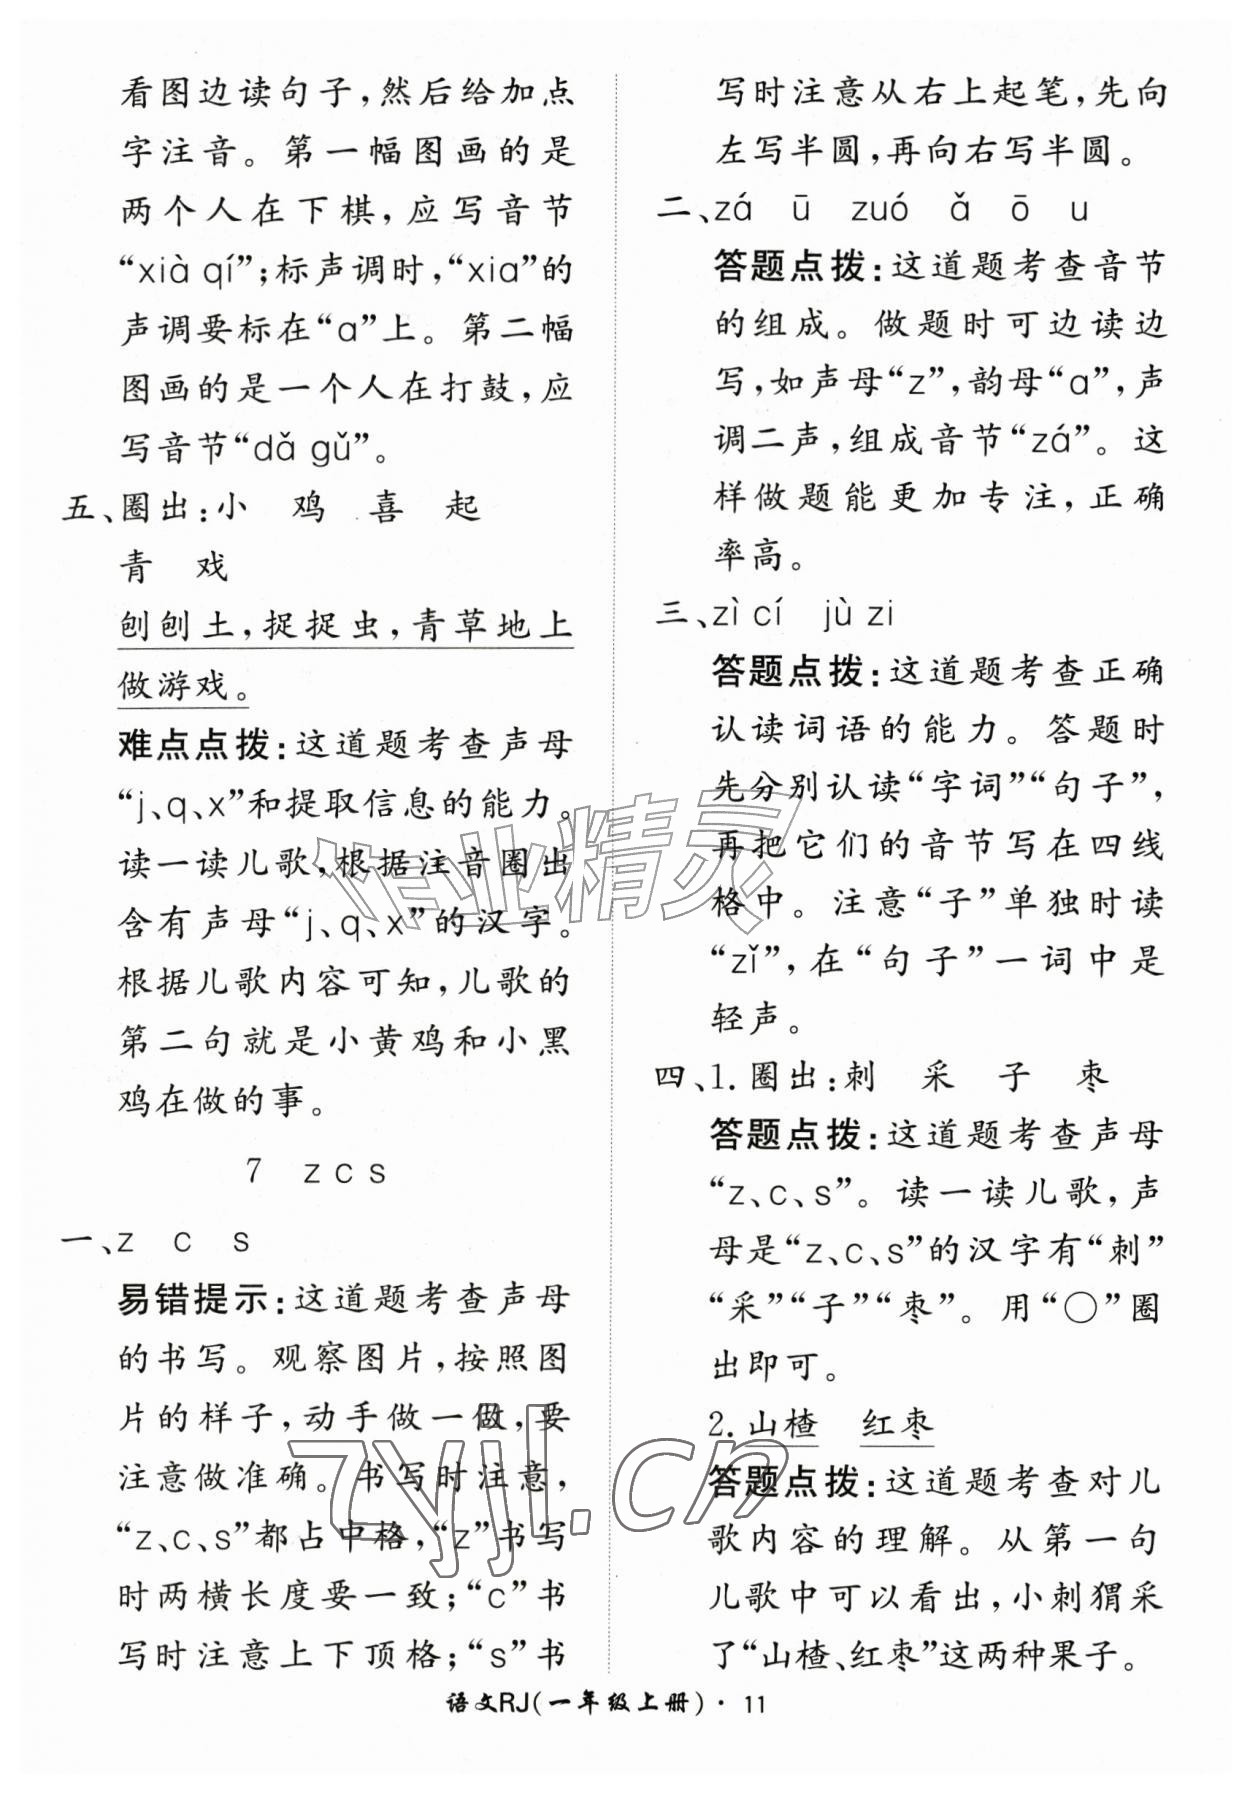 看图边读句子，然后给加点
字注音。第一幅图画的是
两个人在下棋，应写音节
“xià qí”；标声调时，“xia”的
声调要标在“a”上。第二幅
图画的是一个人在打鼓，应
写音节“dǎ gǔ”。
五、圈出：小 鸡 喜 起
青 戏
刨刨土，捉捉虫，青草地上
做游戏。
难点点拨：这道题考查声母
“j、q、x”和提取信息的能力。
读一读儿歌，根据注音圈出
含有声母“j、q、x”的汉字。
根据儿歌内容可知，儿歌的
第二句就是小黄鸡和小黑
鸡在做的事。
7 z c s
一、z c s
易错提示：这道题考查声母
的书写。观察图片，按照图
片的样子，动手做一做，要
注意做准确。书写时注意，
“z、c、s”都占中格，“z”书写
时两横长度要一致；“c”书
写时注意上下顶格；“s”书
写时注意从右上起笔，先向
左写半圆，再向右写半圆。
二、zá ū zuó ǎ ō u
答题点拨：这道题考查音节
的组成。做题时可边读边
写，如声母“z”，韵母“a”，声
调二声，组成音节“zá”。这
样做题能更加专注，正确
率高。
三、zì cí jù zi
答题点拨：这道题考查正确
认读词语的能力。答题时
先分别认读“字词”“句子”，
再把它们的音节写在四线
格中。注意“子”单独时读
“zǐ”，在“句子”一词中是
轻声。
四、1. 圈出：刺 采 子 枣
答题点拨：这道题考查声母
“z、c、s”。读一读儿歌，声
母是“z、c、s”的汉字有“刺”
“采”“子”“枣”。用“○”圈
出即可。
2. 山楂 红枣
答题点拨：这道题考查对儿
歌内容的理解。从第一句
儿歌中可以看出，小刺猬采
了“山楂、红枣”这两种果子。
语文RJ(一年级上册)·11
作业精灵
zyjl.cn